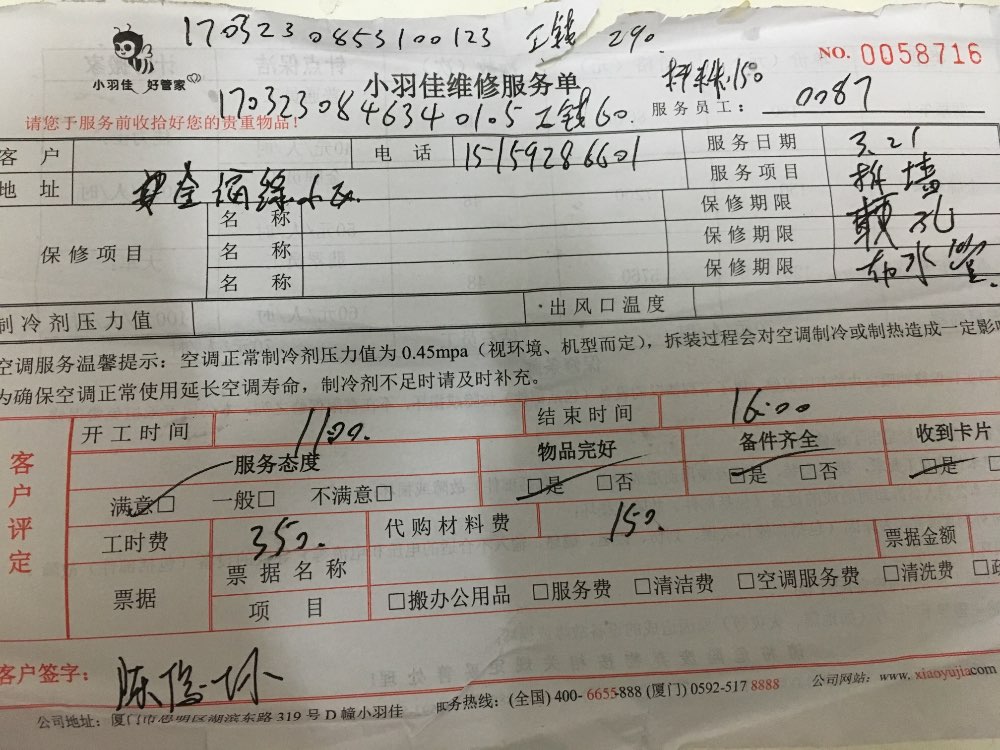 170323 0853100123 工钱 290
NO. 0058716
小羽佳 好管家
小羽佳维修服务单
材料150
170323084634 0105 工钱60.
服务员工: 0087
请您于服务前收拾好您的贵重物品!
客 户 电 话 15159286601 服务日期 3.21
地 址 小区 服务项目 拆墙
保修项目 名 称 保修期限
名 称 保修期限 孔
名 称 保修期限 水管
制冷剂压力值 ·出风口温度
空调服务温馨提示:空调正常制冷剂压力值为0.45mpa(视环境、机型而定),拆装过程会对空调制冷或制热造成一定影响
为确保空调正常使用延长空调寿命,制冷剂不足时请及时补充。
客户评定
开工时间 1100. 结束时间 16:00
服务态度 物品完好 备件齐全 收到卡片
满意□ 一般□ 不满意□ □是 □否 □是 □否 □是
工时费 350. 代购材料费 150.
票据 票据名称 票据金额
项 目 □搬办公用品 □服务费 □清洁费 □空调服务费 □清洗费
客户签字:
公司地址:厦门市思明区湖滨东路319号D幢小羽佳 服务热线:(全国)400-6655-888(厦门)0592-517 8888 公司网站:www.xiaoyujia.com